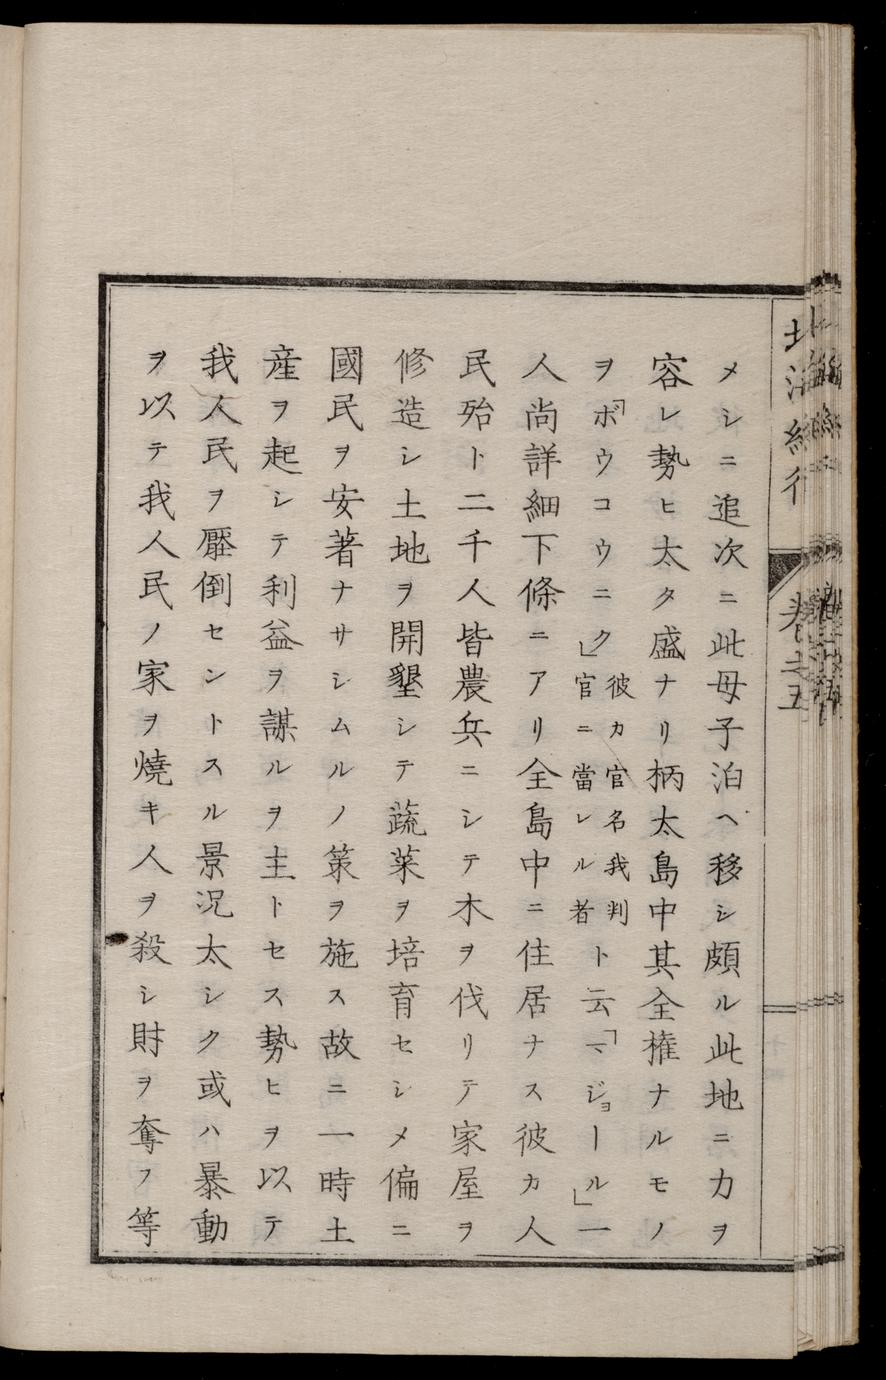 メシニ追次ニ此母子泊ヘ移シ頗ル此地ニ力ヲ
容レ勢ヒ太タ盛ナリ柄太島中其全権ナルモノ
ヲ「ボウコウニク」彼カ官名我判官ニ當レル者ト云「マジョール」一
人尚詳細下條ニアリ全島中ニ住居ナス彼カ人
民殆ト二千人皆農兵ニシテ木ヲ伐リテ家屋ヲ
修造シ土地ヲ開墾シテ蔬菜ヲ培育セシメ偏ニ
國民ヲ安著ナサシムルノ策ヲ施ス故ニ一時土
産ヲ起シテ利益ヲ謀ルヲ主トセス勢ヒヲ以テ
我人民ヲ壓倒セントスル景況太シク或ハ暴動
ヲ以テ我人民ノ家ヲ燒キ人ヲ殺シ財ヲ奪フ等
北海紀行
卷之五